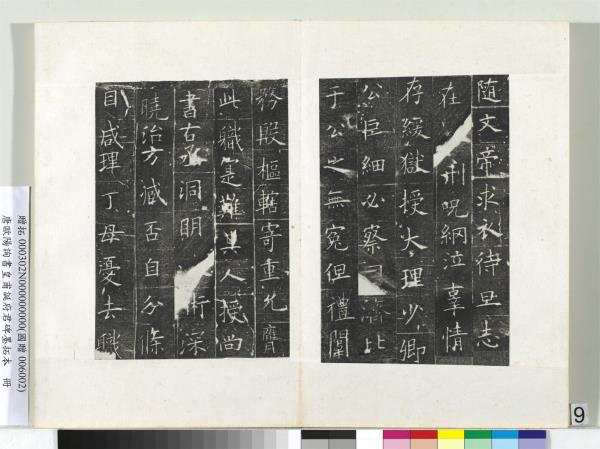 随文帝求衣待旦志
在刑呪網泣辜情
存緩獄授大理少卿
公巨細必察濟比
于公之無冤但禮闈
務殷樞轄寄重允膺
此職寔難其人授尚
書右丞洞明術深
曉治方臧否自分條
目咸理丁母憂去職
贈拓 000302N000000000(國贈 006002)
唐歐陽詢書皇甫誕府君碑墨拓本 冊
9